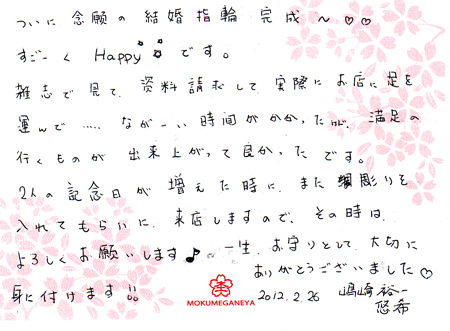 ついに 念願の 結婚指輪 完成〜♡♡
すごーく Happy です。
雑誌で見て、資料請求して、実際にお店に足を
運んで‥‥‥ながーい時間がかかったが、満足の
行くものが 出来上がって良かったです。
2人の記念日が 増えた時に、また 彫りを
入れてもらいに、来店しますので、その時は、
よろしくお願いします♪ 一生、お守りとして、大切に
身に付けます!!
ありがとうございました♡
MOKUMEGANEYA
2012.2.26 嶋崎 裕一
悠希